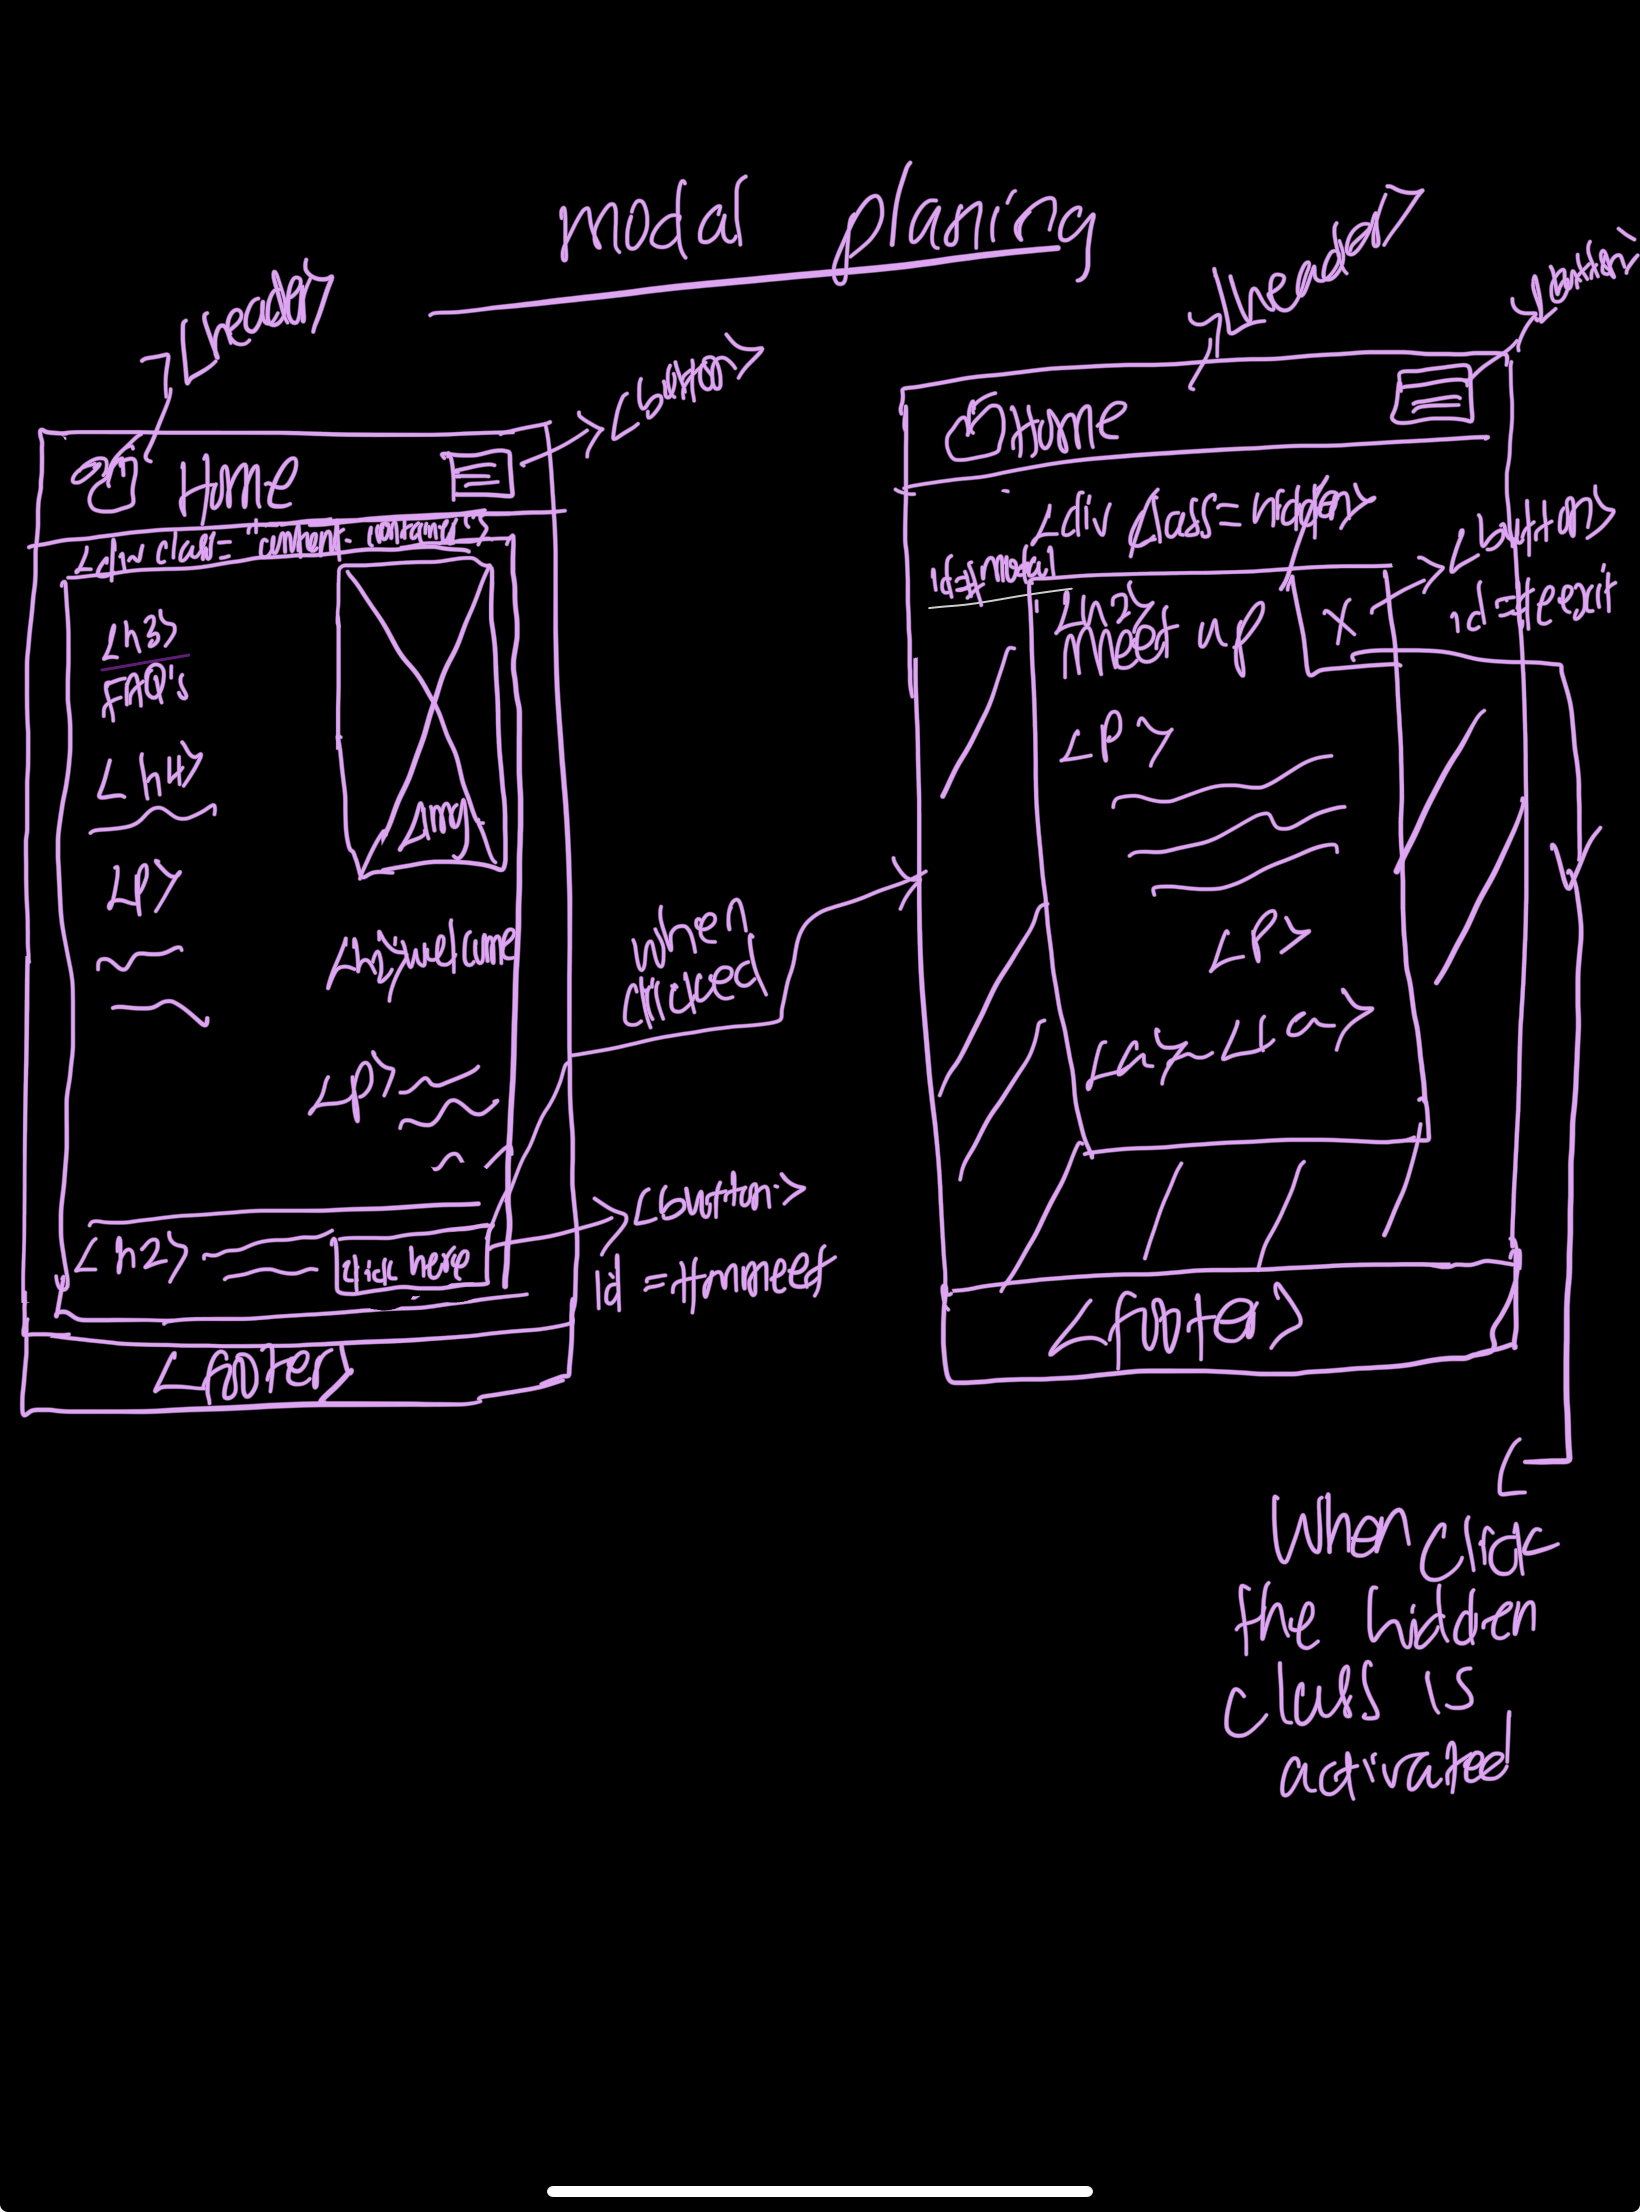 modal planing
<header>
<button>
Home
<div class= "content-container">
<h3>
FAQ's
<h4>
<P>
<img>
<h2>welcome
<P>
<h2>
click here
<footer>
when
clicked
<button>
id =#mmeet
<header>
<button>
Home
<div class=hidden>
id=#modal
<h2>
meet up
X
<button>
id=#exit
<P>
<P>
<footer>
When click
the hidden
class is
activated